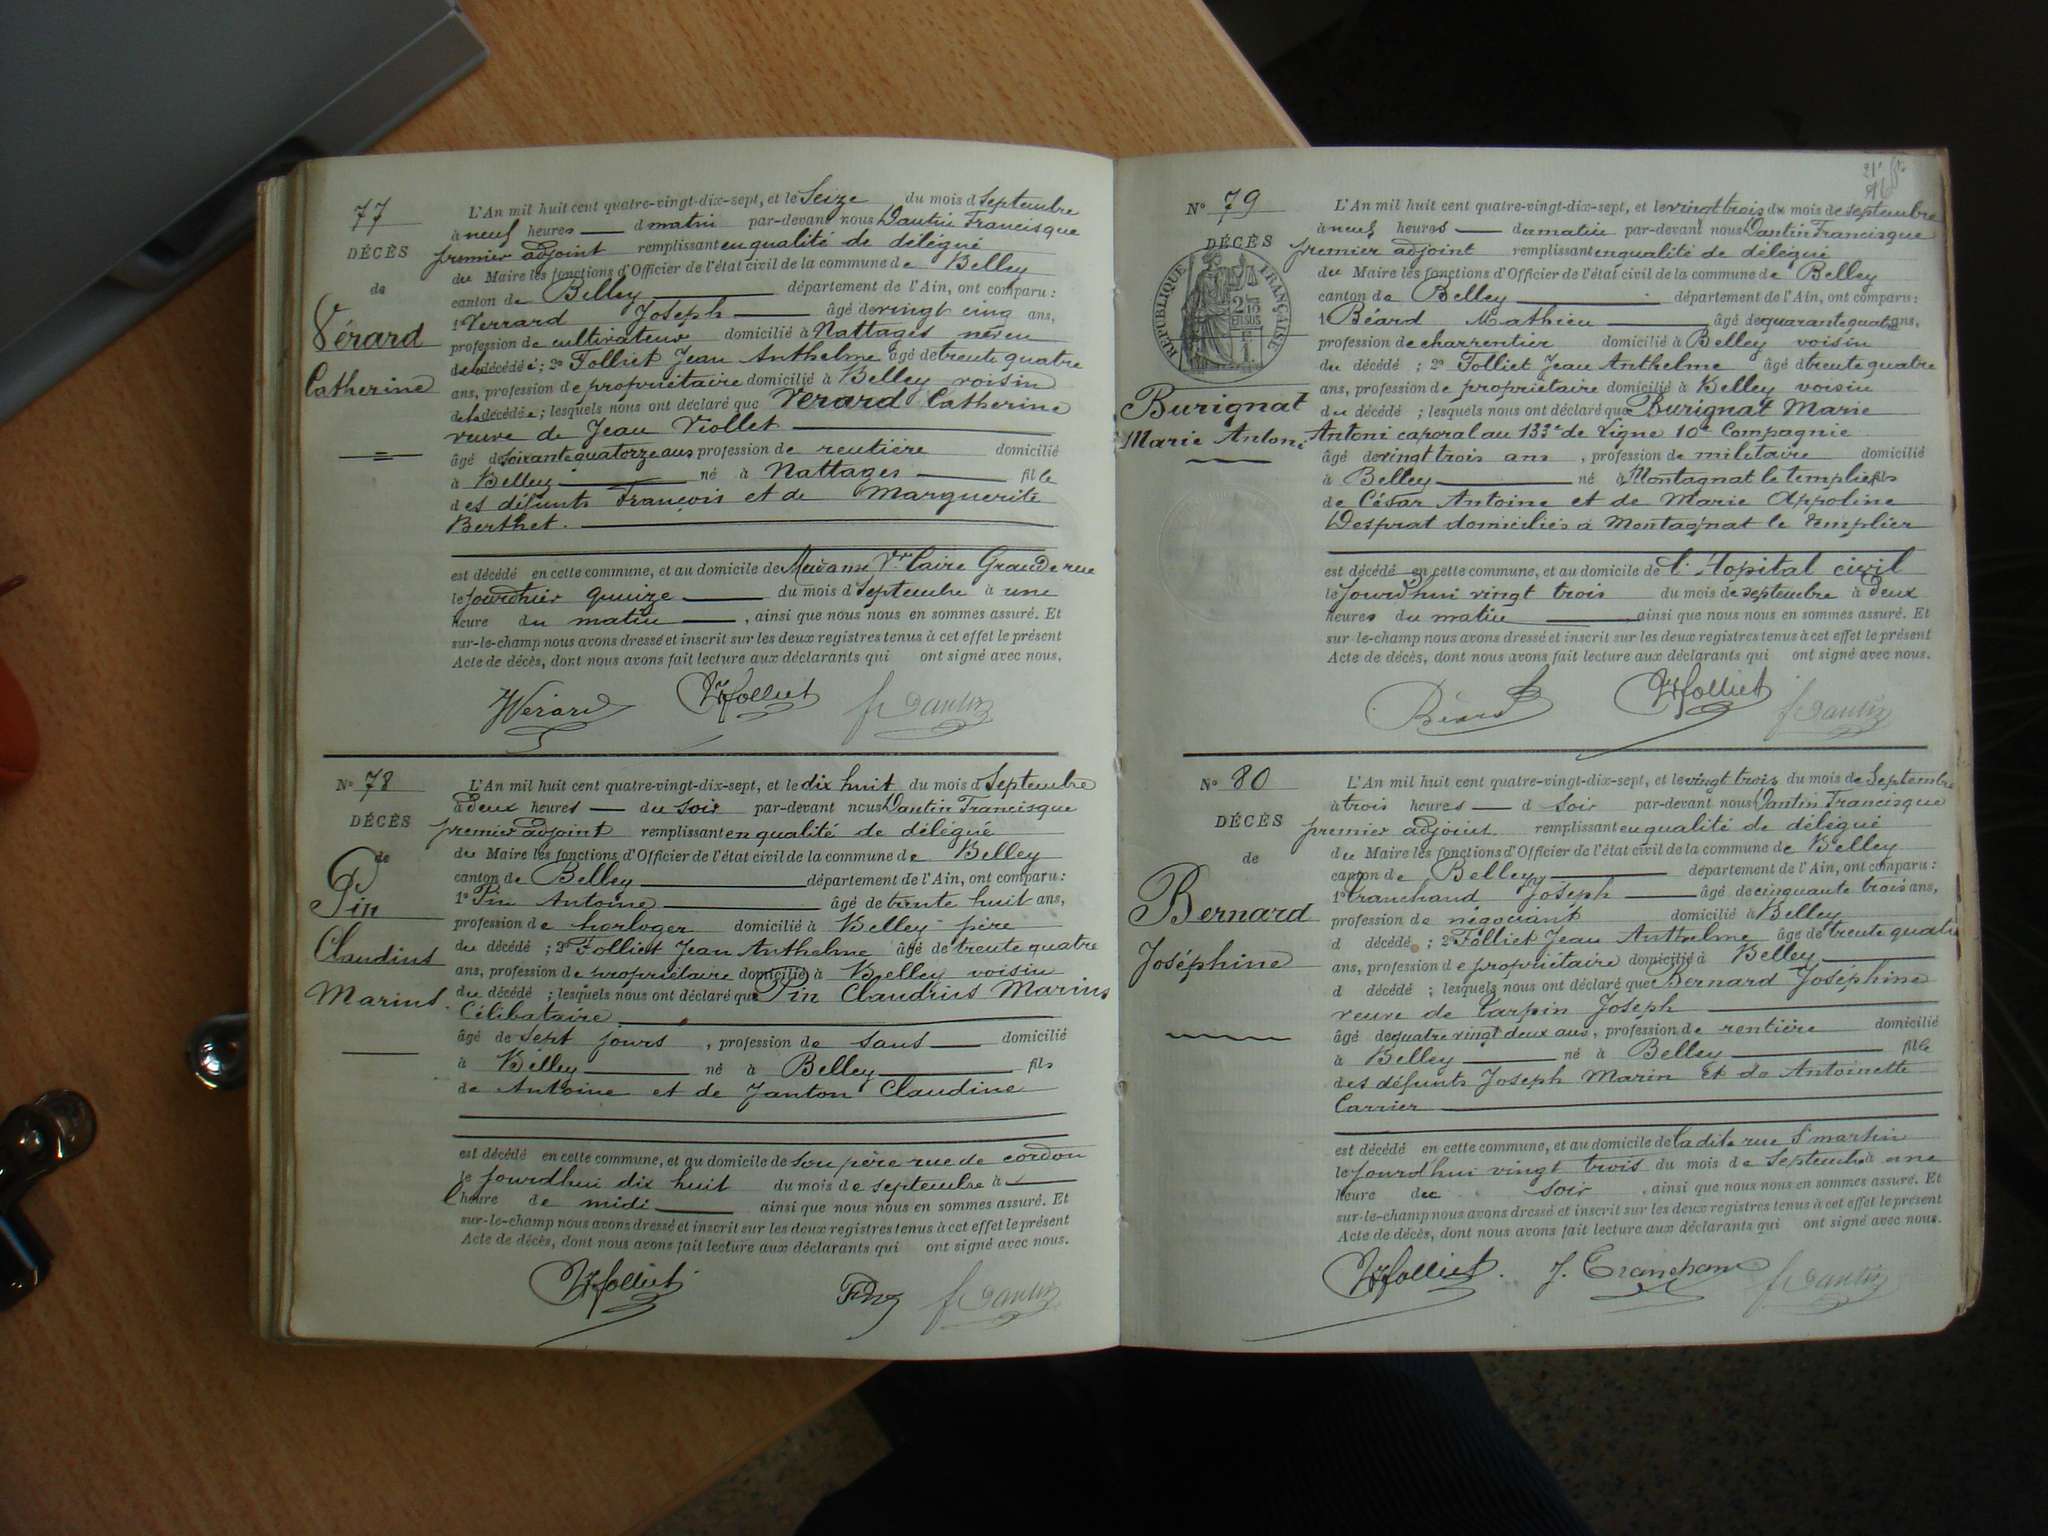 77
DÉCÈS
de
Vérard
Catherine
L'An mil huit cent quatre-vingt-dix-sept, et le Seize du mois d septembre
à neuf heures d matin par-devant nous Dantin Francisque
premier adjoint remplissant en qualité de délégué
du Maire les fonctions d'Officier de l'état civil de la commune de Belley
canton de Belley département de l'Ain, ont comparu :
1º Verrard Joseph âgé de vingt cinq ans,
profession de cultivateur domicilié à Nattages neveu
de la décédée ; 2º Folliet Jean Anthelme âgé de trente quatre
ans, profession de propriétaire domicilié à Belley voisin
de la décédée ; lesquels nous ont déclaré que Verard Catherine
veuve de Jean Viollet
âgé de soixante quatorze ans profession de rentière domicilié
à Belley né à Nattages fille
des défunts François et de Marguerite
Berthet.
est décédé en cette commune, et au domicile de Madame Vve Caire Grande rue
le jourdhier quinze du mois d septembre à une
heure du matin , ainsi que nous nous en sommes assuré. Et
sur-le-champ nous avons dressé et inscrit sur les deux registres tenus à cet effet le présent
Acte de décès, dont nous avons fait lecture aux déclarants qui ont signé avec nous.
JVérard Folliet f Dantin
Nº 78
DÉCÈS
de
Pin
Claudius
Marius.
L'An mil huit cent quatre-vingt-dix-sept, et le dix huit du mois d Septembre
à deux heures du soir par-devant nous Dantin Francisque
premier adjoint remplissant en qualité de délégué
du Maire les fonctions d'Officier de l'état civil de la commune de Belley
canton de Belley département de l'Ain, ont comparu :
1º Pin Antoine âgé de trente huit ans,
profession de horloger domicilié à Belley père
du décédé ; 2º Folliet Jean Anthelme âgé de trente quatre
ans, profession de propriétaire domicilié à Belley voisin
du décédé ; lesquels nous ont déclaré que Pin Claudius Marius
Célibataire
âgé de sept jours , profession de sans domicilié
à Belley né à Belley fils
de Antoine et de Janton Claudine
est décédé en cette commune, et au domicile de son père rue de cordon
le jourdhui dix huit du mois de septembre à
l'heure de midi ainsi que nous nous en sommes assuré. Et
sur-le-champ nous avons dressé et inscrit sur les deux registres tenus à cet effet le présent
Acte de décès, dont nous avons fait lecture aux déclarants qui ont signé avec nous.
Folliet f Dantin
Nº 79
DÉCÈS
RÉPUBLIQUE FRANÇAISE
Burignat
Marie Antoni
L'An mil huit cent quatre-vingt-dix-sept, et le vingt trois du mois de septembre
à neuf heures du matin par-devant nous Dantin Francisque
premier adjoint remplissant en qualité de délégué
du Maire les fonctions d'Officier de l'état civil de la commune de Belley
canton de Belley département de l'Ain, ont comparu :
1 Béard Mathieu âgé de quarante quatre ans,
profession de charrentier domicilié à Belley voisin
du décédé ; 2º Folliet Jean Anthelme âgé d trente quatre
ans, profession de propriétaire domicilié à Belley voisin
du décédé ; lesquels nous ont déclaré que Burignat Marie
Antoni caporal au 133e de Ligne 10e Compagnie
âgé de vingt trois ans , profession de militaire domicilié
à Belley né à Montagnat le templier fils
de César Antoine et de Marie Appoline
Desprat domiciliés à Montagnat le templier
est décédé en cette commune, et au domicile de l'Hopital civil
le jourdhui vingt trois du mois de septembre à deux
heures du matin ainsi que nous nous en sommes assuré. Et
sur-le-champ nous avons dressé et inscrit sur les deux registres tenus à cet effet le présent
Acte de décès, dont nous avons fait lecture aux déclarants qui ont signé avec nous.
Béard Folliet f Dantin
Nº 80
DÉCÈS
de
Bernard
Joséphine
L'An mil huit cent quatre-vingt-dix-sept, et le vingt trois du mois de Septembre
à trois heures d soir par-devant nous Dantin Francisque
premier adjoint remplissant en qualité de délégué
du Maire les fonctions d'Officier de l'état civil de la commune de Belley
canton de Belley département de l'Ain, ont comparu :
1º Tranchand Joseph âgé de cinquante trois ans,
profession de négociant domicilié à Belley
d décédé ; 2º Folliet Jean Anthelme âgé de trente quatre
ans, profession de propriétaire domicilié à Belley
d décédé ; lesquels nous ont déclaré que Bernard Joséphine
veuve de Carpin Joseph
âgé de quatre vingt deux ans, profession de rentière domicilié
à Belley né à Belley fille
des défunts Joseph Marin et de Antoinette
Carrier
est décédé en cette commune, et au domicile de ladite rue St martin
le jourdhui vingt trois du mois de Septembre à une
heure du soir , ainsi que nous nous en sommes assuré. Et
sur-le-champ nous avons dressé et inscrit sur les deux registres tenus à cet effet le présent
Acte de décès, dont nous avons fait lecture aux déclarants qui ont signé avec nous.
Folliet. J. Tranchand f Dantin